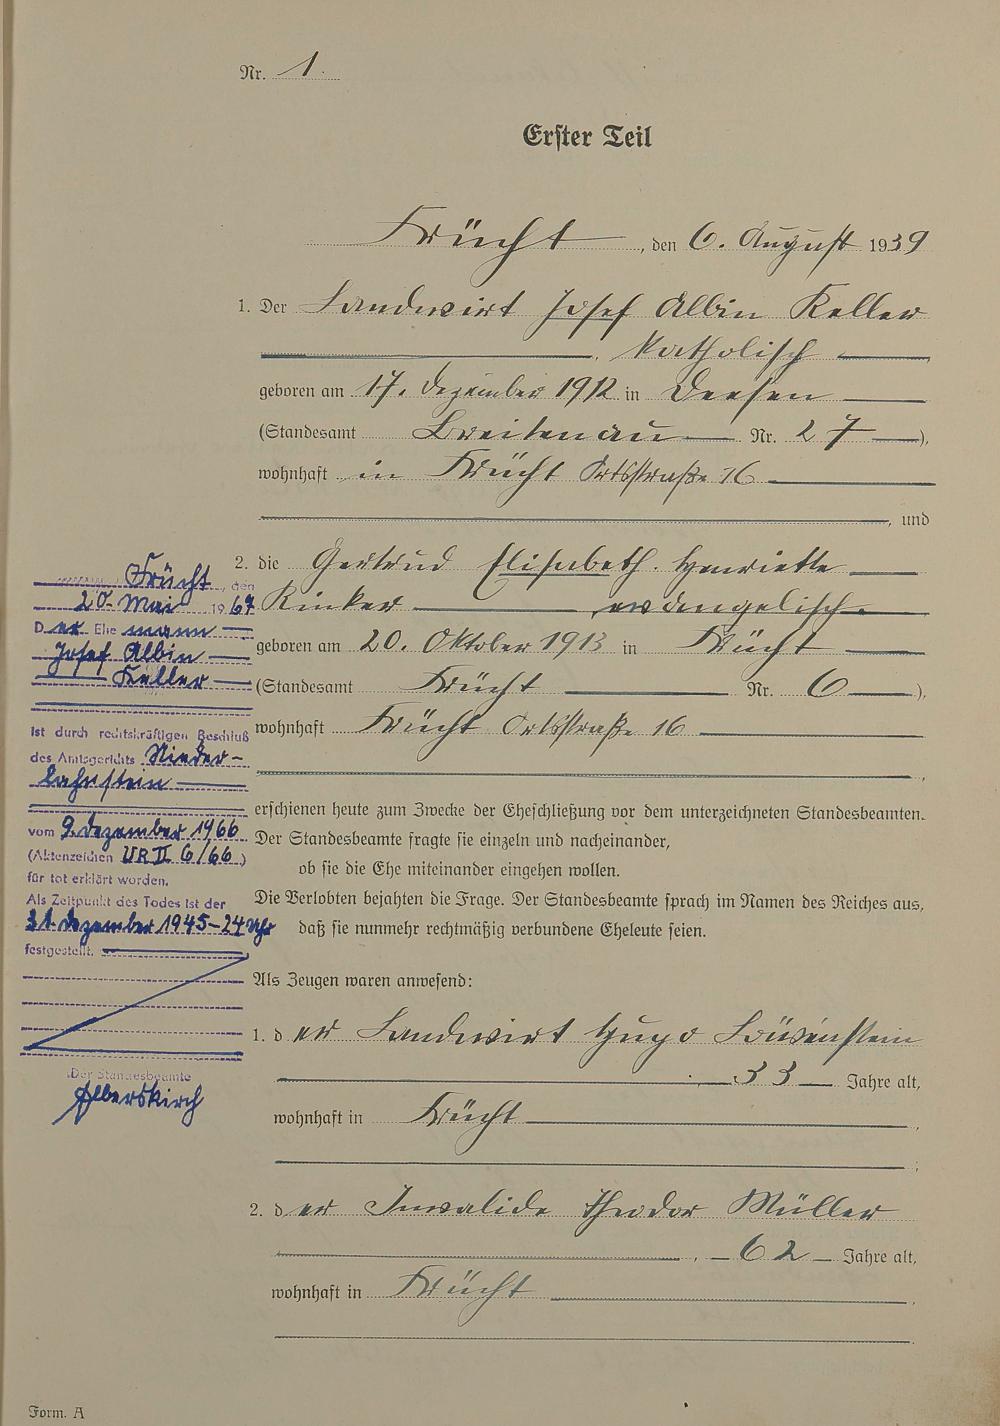 Nr. 1.
Erster Teil
Frücht, den 6. August 1939
1. Der Landwirt Josef Albin Keller
, katholisch
geboren am 17. Dezember 1912 in Deesen
(Standesamt Breitenau Nr. 27),
wohnhaft in Frücht Ortsstraße 16
, und
2. die Gertrud Elisabeth Henriette
Rinker evangelisch
geboren am 20. Oktober 1913 in Frücht
(Standesamt Frücht Nr. 6),
wohnhaft Frücht Ortsstraße 16
,
erschienen heute zum Zwecke der Eheschließung vor dem unterzeichneten Standesbeamten.
Der Standesbeamte fragte sie einzeln und nacheinander,
ob sie die Ehe miteinander eingehen wollen.
Die Verlobten bejahten die Frage. Der Standesbeamte sprach im Namen des Reiches aus,
daß sie nunmehr rechtmäßig verbundene Eheleute seien.
Als Zeugen waren anwesend:
1. der Landwirt Hugo Löwenstein
, 33 Jahre alt,
wohnhaft in Frücht,
;
2. der Invalide Theodor Müller
, 62 Jahre alt,
wohnhaft in Frücht,
Frücht, den
20. Mai 1967
Der Ehemann
Josef Albin
Keller
ist durch rechtskräftigen Beschluß
des Amtsgerichts Nieder-
lahnstein
vom 9. Dezember 1966
(Aktenzeichen UR II 6/66)
für tot erklärt worden.
Als Zeitpunkt des Todes ist der
31. Dezember 1945 - 24 Uhr
festgestellt.
Der Standesbeamte
Alberskirch
Form. A